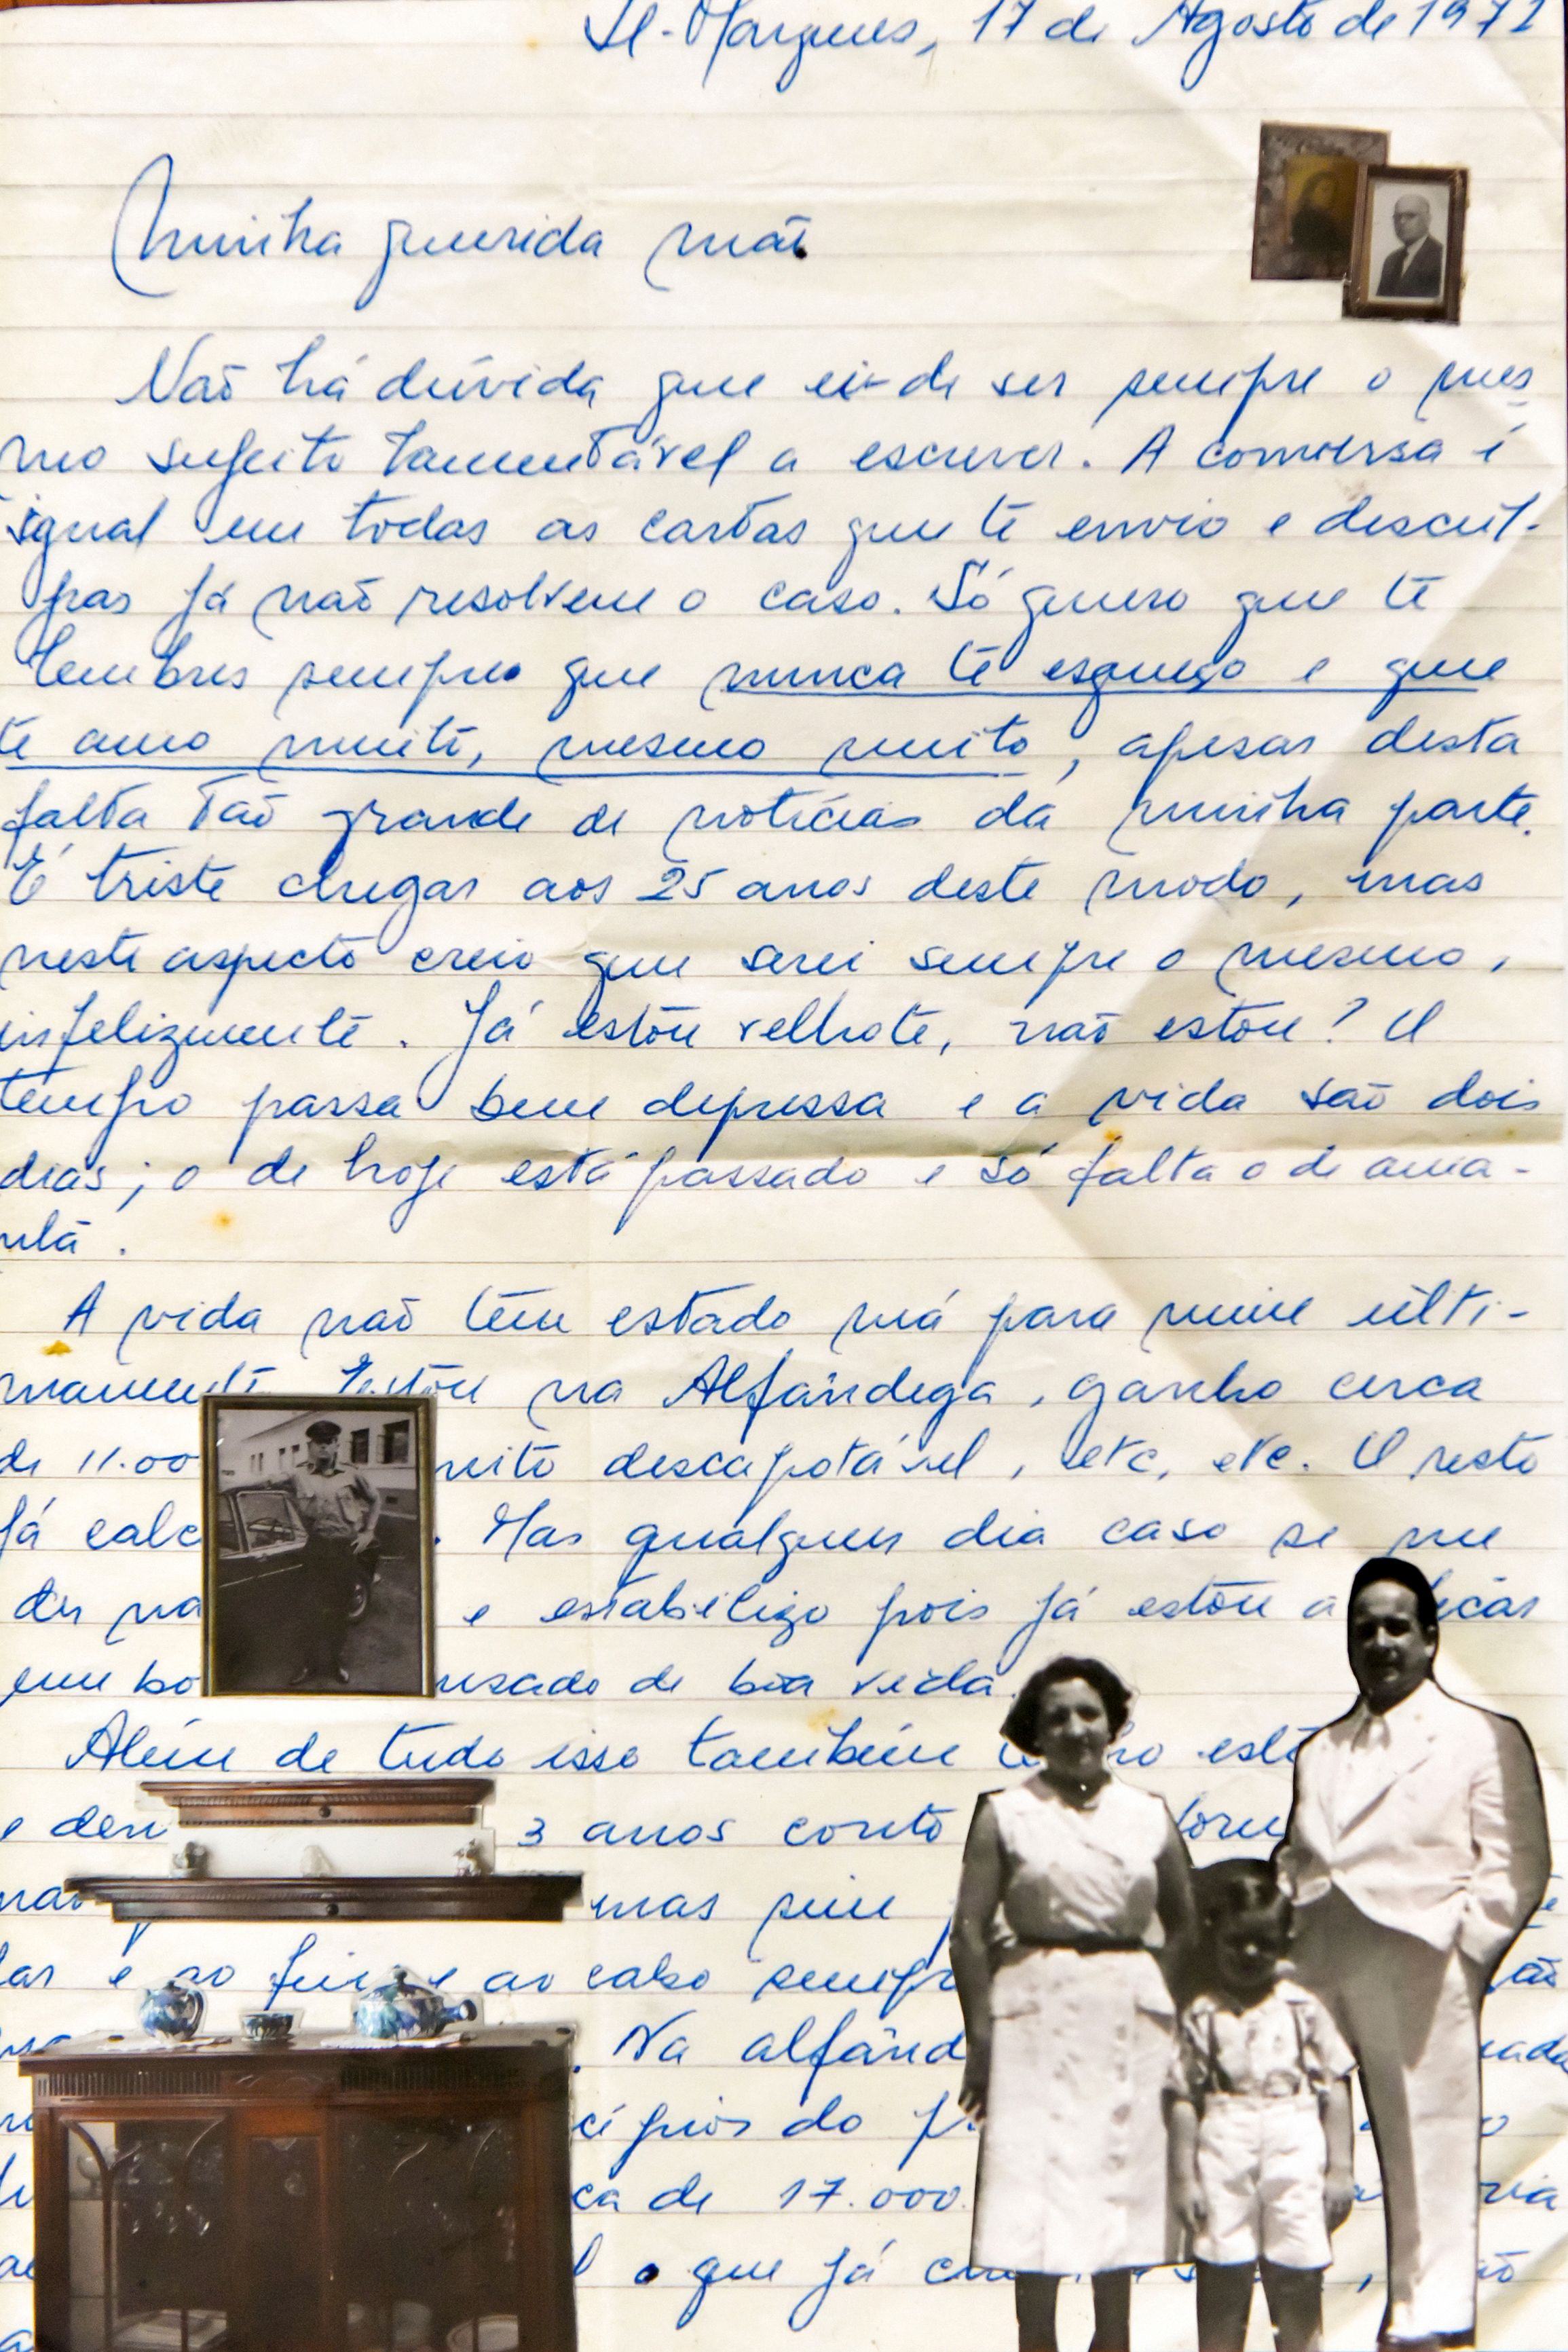 Marques, 17 de Agosto de 1971
Minha querida mãe
Não há dúvida que ei-de ser sempre o mes
mo sujeito lamentável a escrever. A conversa é
igual em todas as cartas que te envio e descul-
pas já não resolvem o caso. Só quero que te
lembres sempre que nunca te esqueço e que
te amo muito, mesmo muito, apesar desta
falta tão grande de notícias da minha parte.
É triste chegar aos 25 anos deste modo, mas
neste aspecto creio que serei sempre o mesmo,
infelizmente. Já estou velhote, não estou? O
tempo passa bem depressa e a vida são dois
dias; o de hoje está passado e só falta o de ama-
nhã.
A vida não tem estado má para mim ulti-
mamente. Estou na Alfândega, ganho cerca
de 11.00 descapotável, etc, etc. O resto
já calc . Mas qualquer dia caso se me
der na e estabilizo pois já estou a ficar
um bo usado de boa vida.
Além de tudo isso também est
e den 3 anos conto
mas sim
lar e ao fim e ao cabo sempr
. Na alfând
cípios do
ca de 17.000
o que já